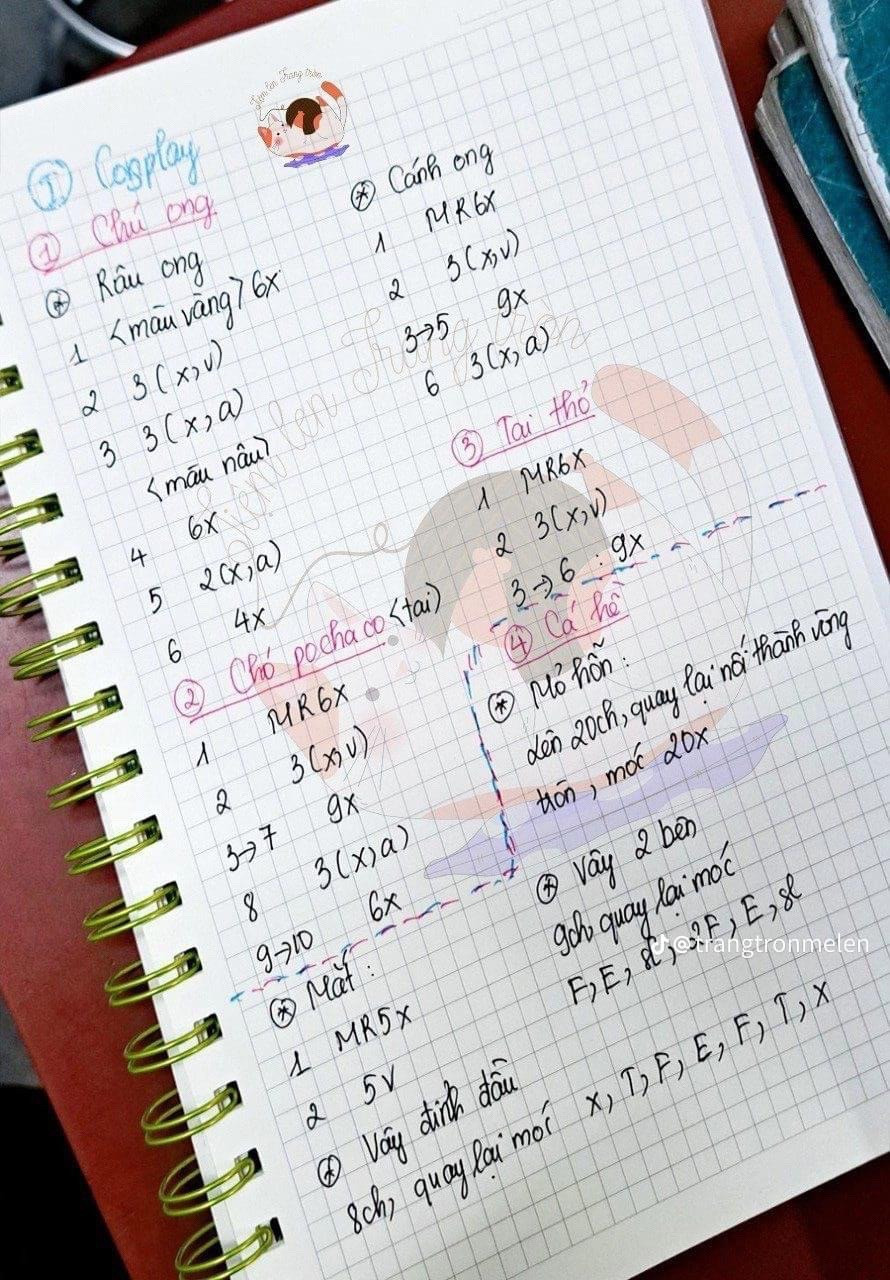 Tiệm len Trang tròn
I Cosplay
1 Chú ong
* Râu ong
1 <màu vàng> 6x
2 3(x,v)
3 3(x,a)
<màu nâu>
4 6x
5 2(x,a)
6 4x
* Cánh ong
1 MR6x
2 3(x,v)
3→5 9x
6 3(x,a)
2 Chó pochaco <tai>
1 MR6x
2 3(x,v)
3→7 9x
8 3(x,a)
9→10 6x
3 Tai thỏ
1 MR6x
2 3(x,v)
3→6 : 9x
4 Cá hề
* Mỏ hỗn :
Lên 20ch, quay lại nối thành vòng
tròn, móc 20x
* Vây 2 bên
9ch, quay lại móc
F, E, sl, 2F, E, sl
* Mắt :
1 MR5x
2 5v
* Vây đỉnh đầu
8ch, quay lại móc x, T, F, E, F, T, x
Tiệm len Trang tròn
@trangtronmelen